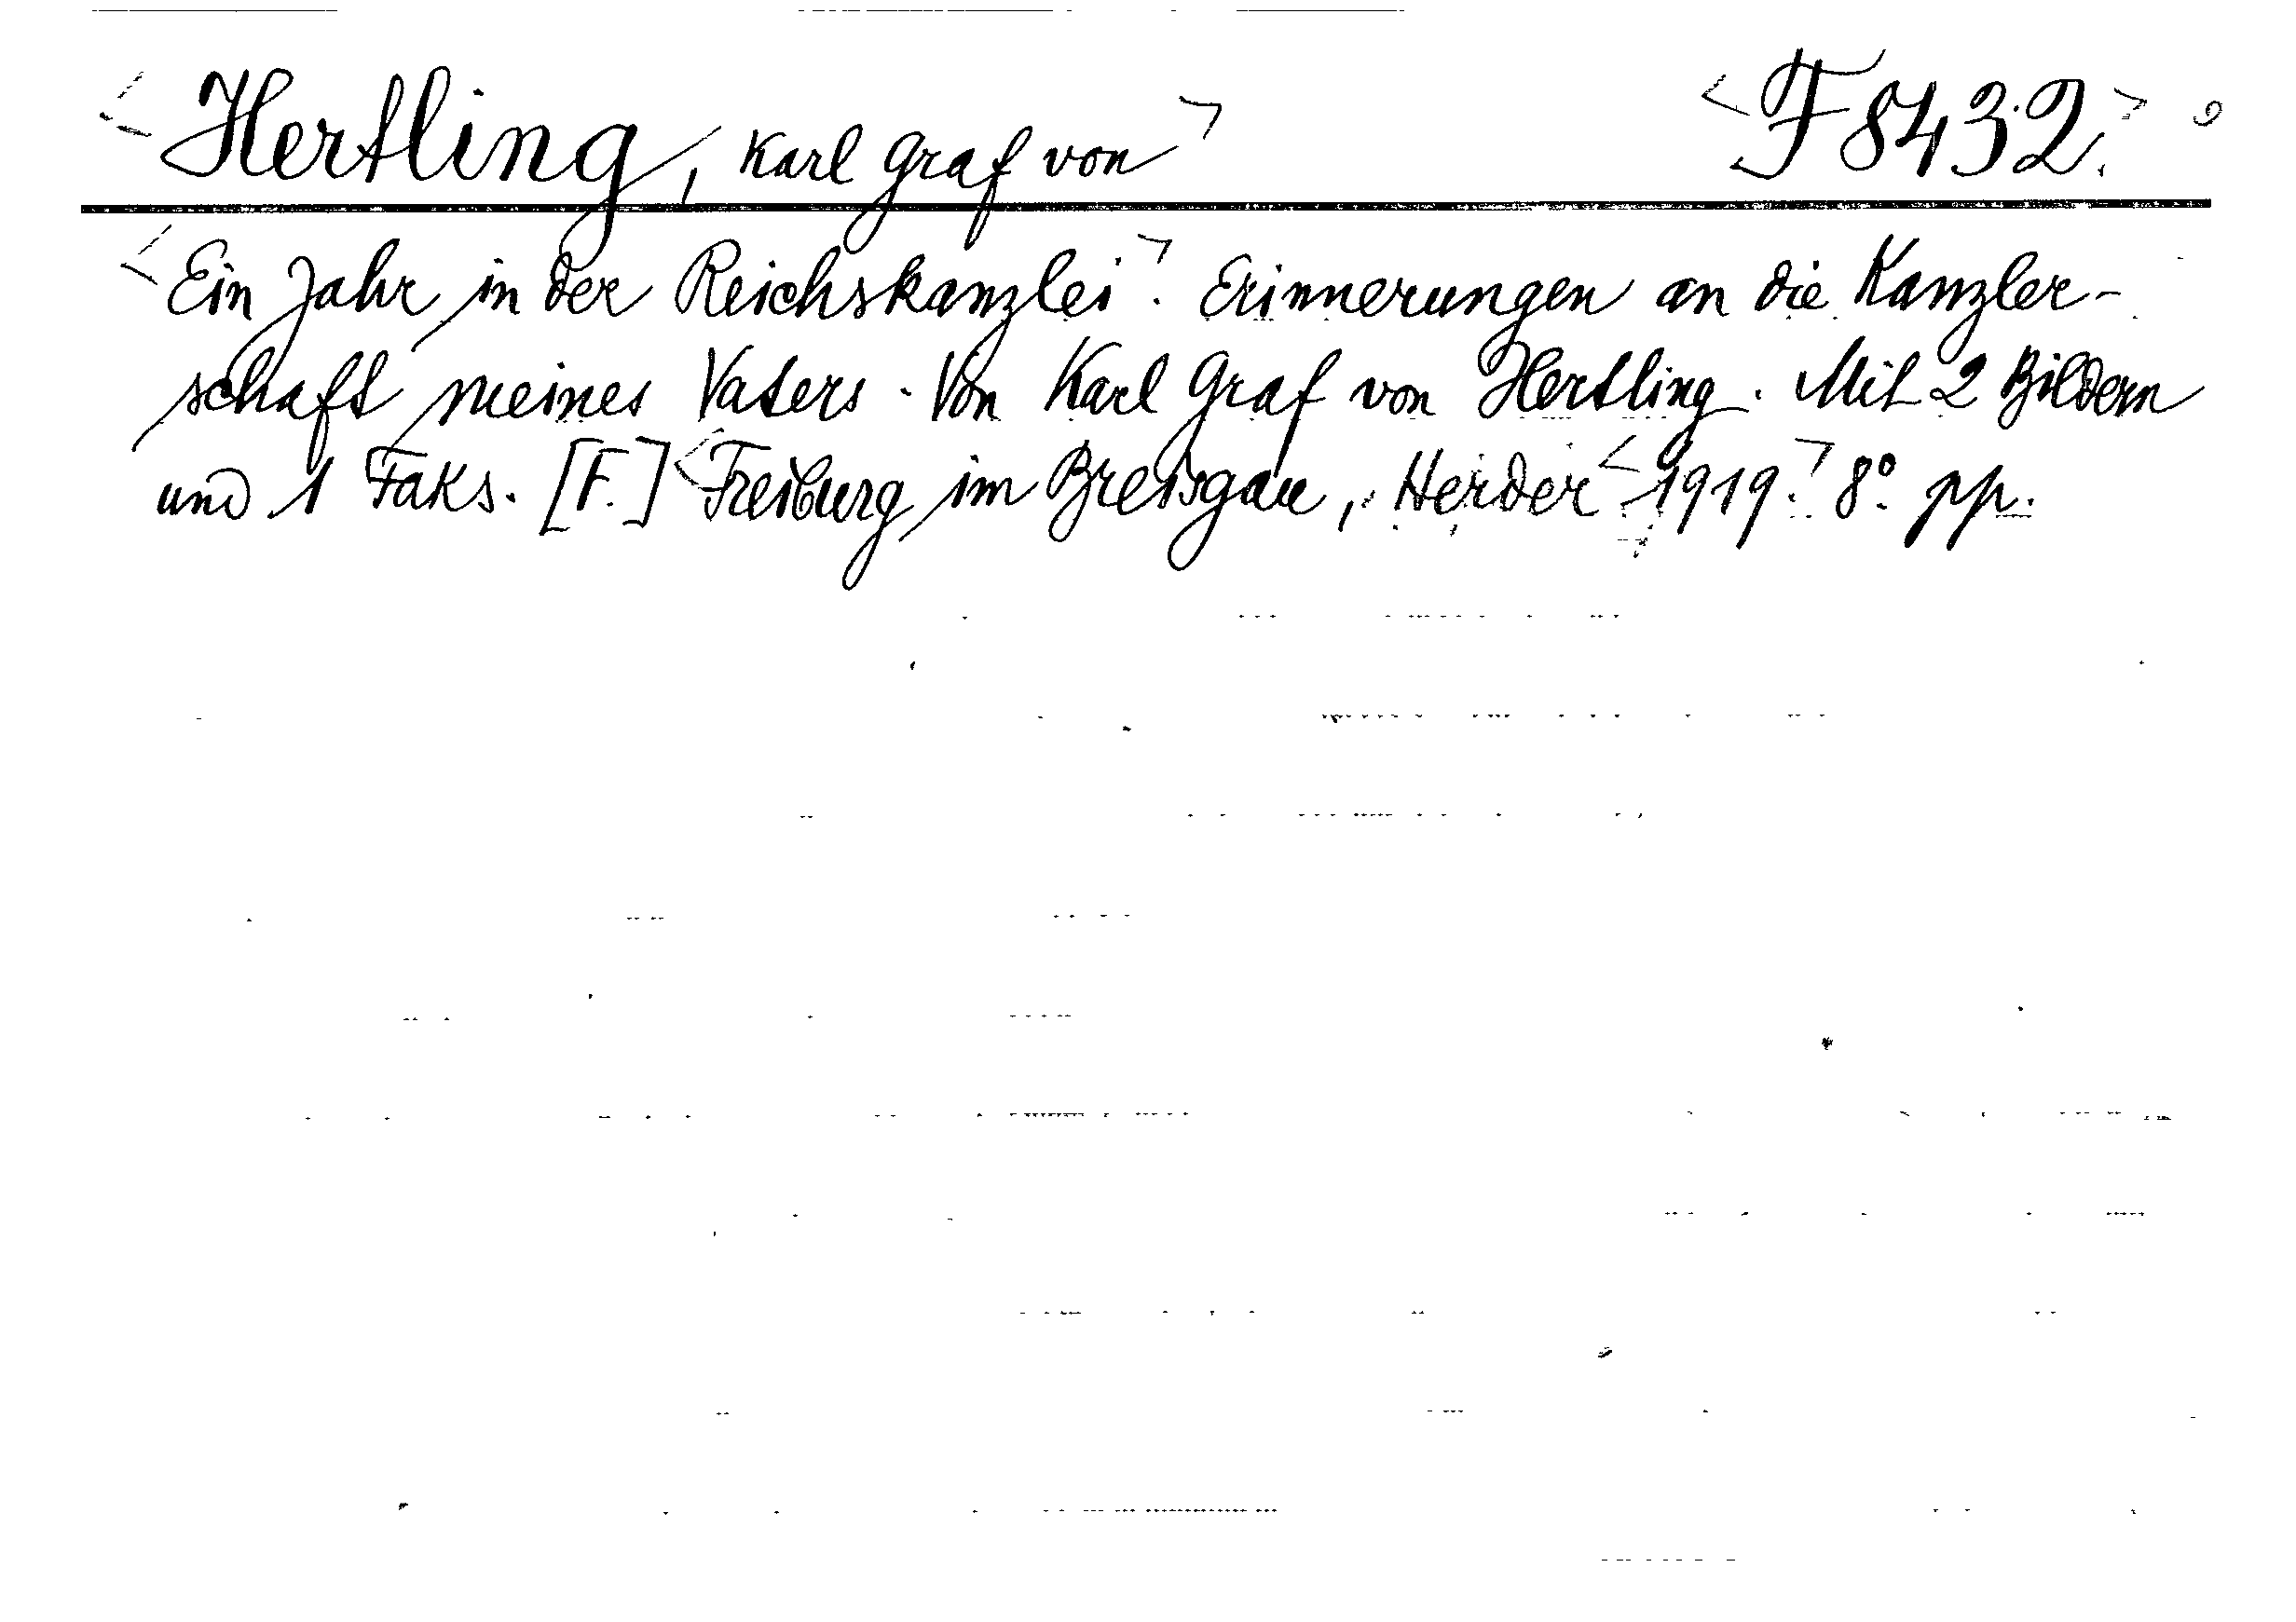 <Hertling, Karl Graf von> <F 8432.>
<Ein Jahr in der Reichskanzlei>. Erinnerungen an die Kanzler-
schaft meines Vaters. Von Karl Graf von Hertling. Mit 2 Bildern
und 1 Faks. [F.] <Freiburg im Breisgau, Herder <1919.> 8° pp.